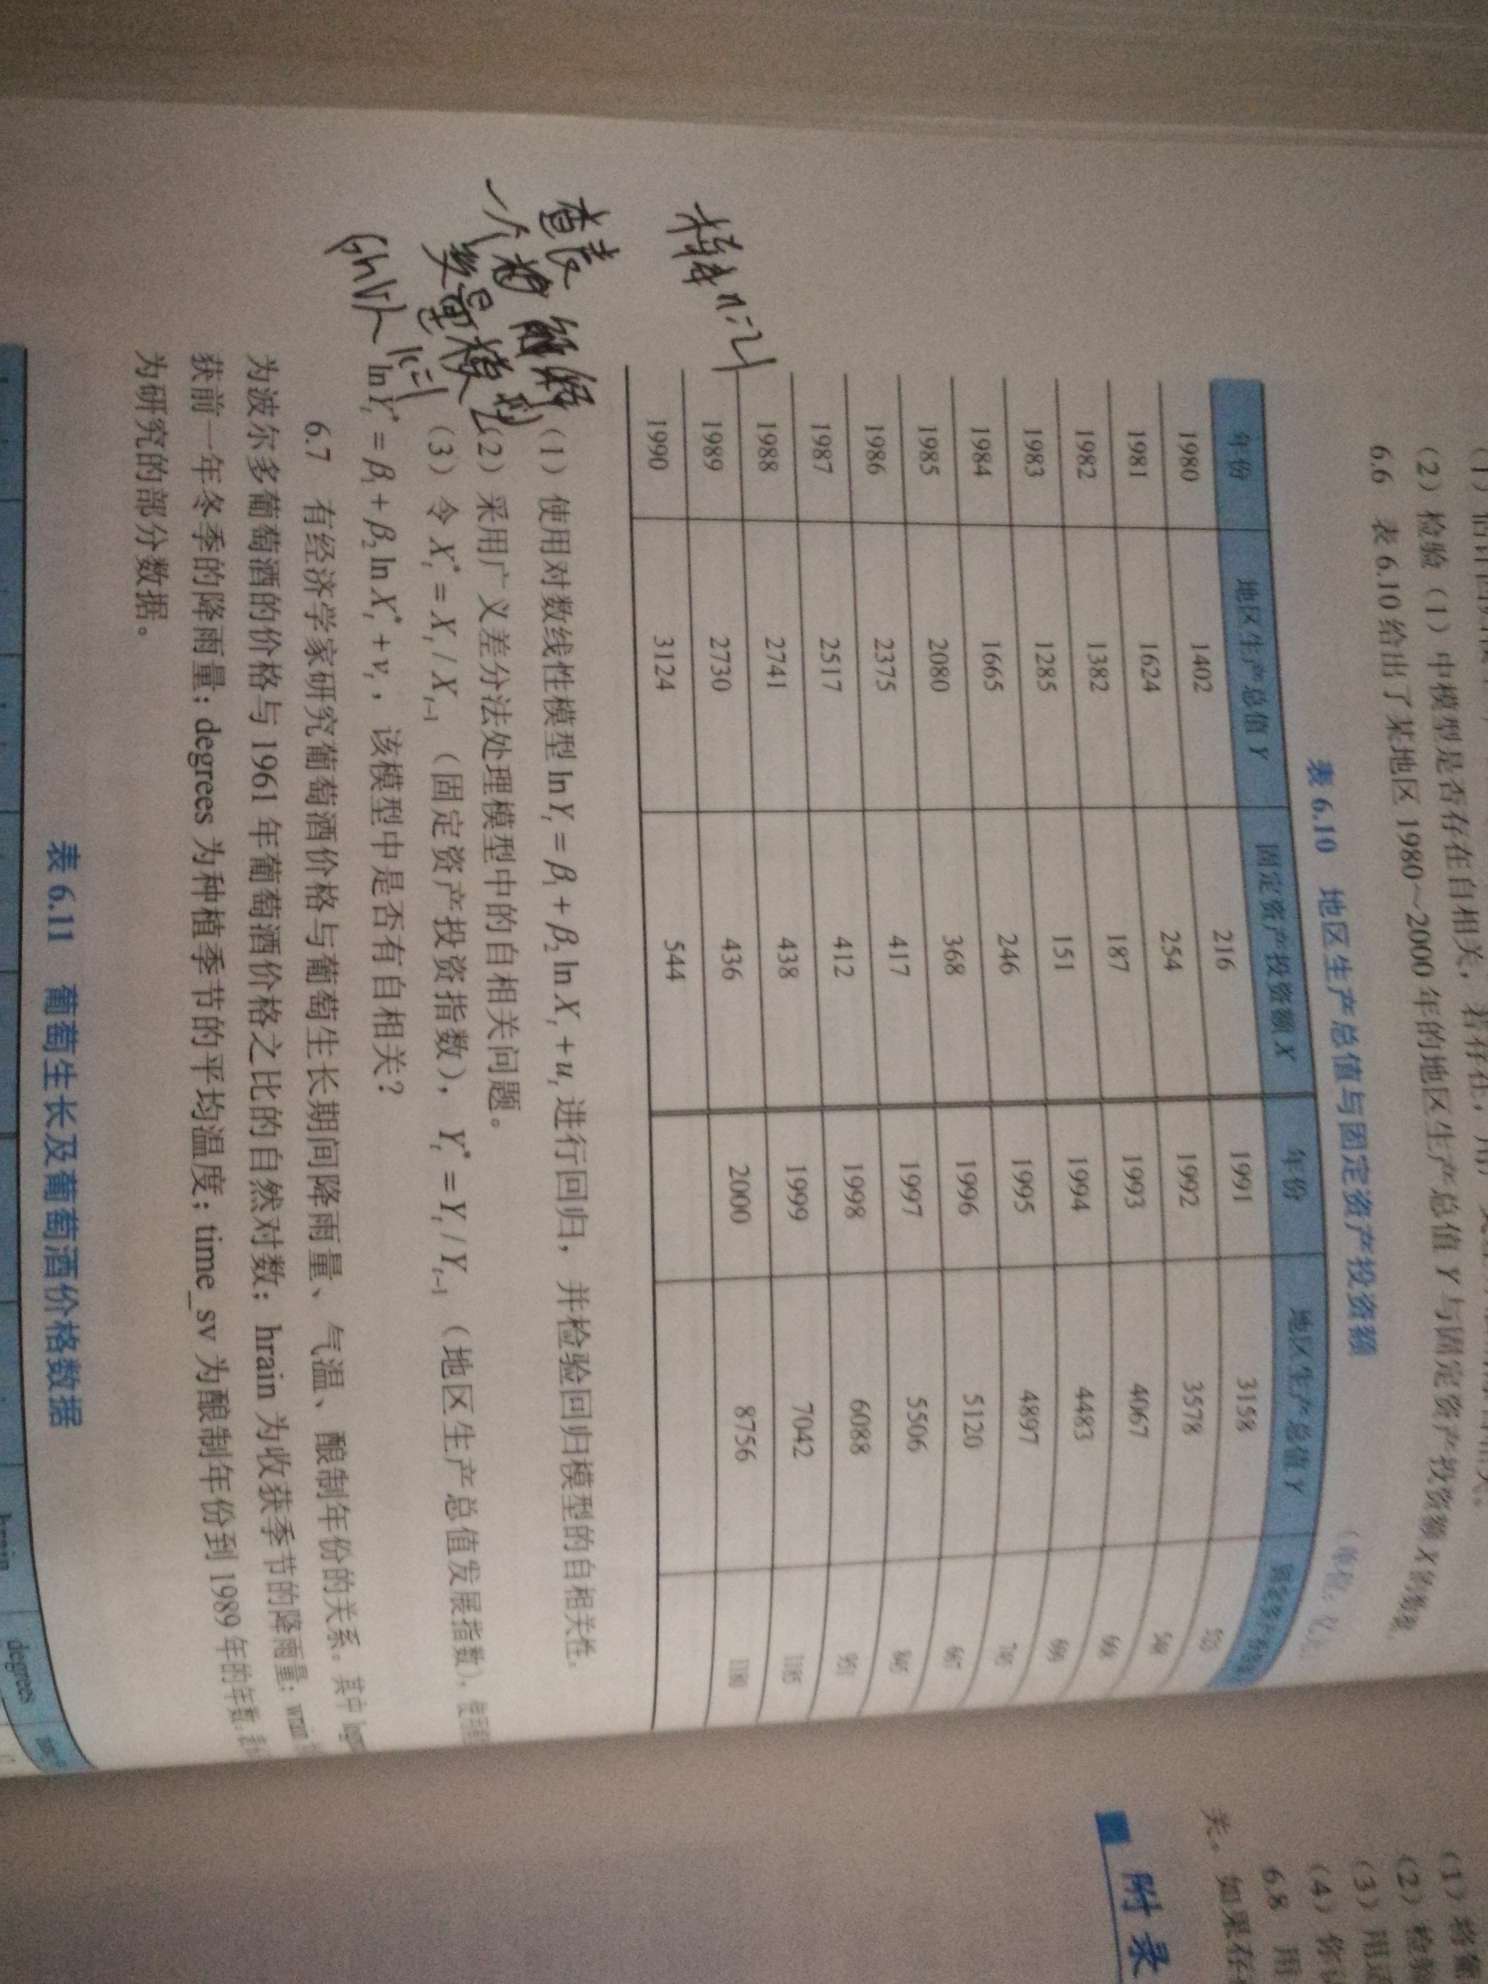 （2）检验（1）中模型是否存在自相关，若存在，用
6.6 表6.10给出了某地区1980～2000年的地区生产总值Y与固定资产投资额X的数据
表6.10 地区生产总值与固定资产投资额
年份 地区生产总值Y 固定资产投资额X 年份 地区生产总值Y 固定资产投资额
1980 1402 216 1991 3158 523
1981 1624 254 1992 3578 548
1982 1382 187 1993 4067 668
1983 1285 151 1994 4483 699
1984 1665 246 1995 4897 745
1985 2080 368 1996 5120 667
1986 2375 417 1997 5506 845
1987 2517 412 1998 6088 951
1988 2741 438 1999 7042 1185
1989 2730 436 2000 8756 1180
1990 3124 544
样本n=21
查表
一个解释
变量模型
k=1
（1）使用对数线性模型 ln Yₜ = β₁ + β₂ ln Xₜ + uₜ 进行回归，并检验回归模型的自相关性。
（2）采用广义差分法处理模型中的自相关问题。
（3）令 Xₜ* = Xₜ / Xₜ₋₁（固定资产投资指数），Yₜ* = Yₜ / Yₜ₋₁（地区生产总值发展指数），使用模型
ln Yₜ* = β₁ + β₂ ln Xₜ* + vₜ，该模型中是否有自相关？
6.7 有经济学家研究葡萄酒价格与葡萄生长期间降雨量、气温、酿制年份的关系。其中
为波尔多葡萄酒的价格与1961年葡萄酒价格之比的自然对数；hrain为收获季节的降雨量；wrain
获前一年冬季的降雨量；degrees为种植季节的平均温度；time_sv为酿制年份到1989年的年数。
为研究的部分数据。
表6.11 葡萄生长及葡萄酒价格数据
hrain degrees
（1）将葡
（2）检验
（3）用
（4）你
6.8 用
关。如果存
附录